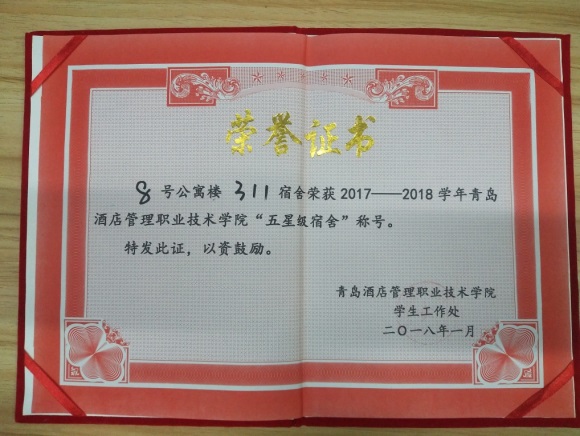 荣誉证书
8号公寓楼 311宿舍荣获2017——2018学年青岛
酒店管理职业技术学院“五星级宿舍”称号。
特发此证，以资鼓励。
青岛酒店管理职业技术学院
学生工作处
二〇一八年一月